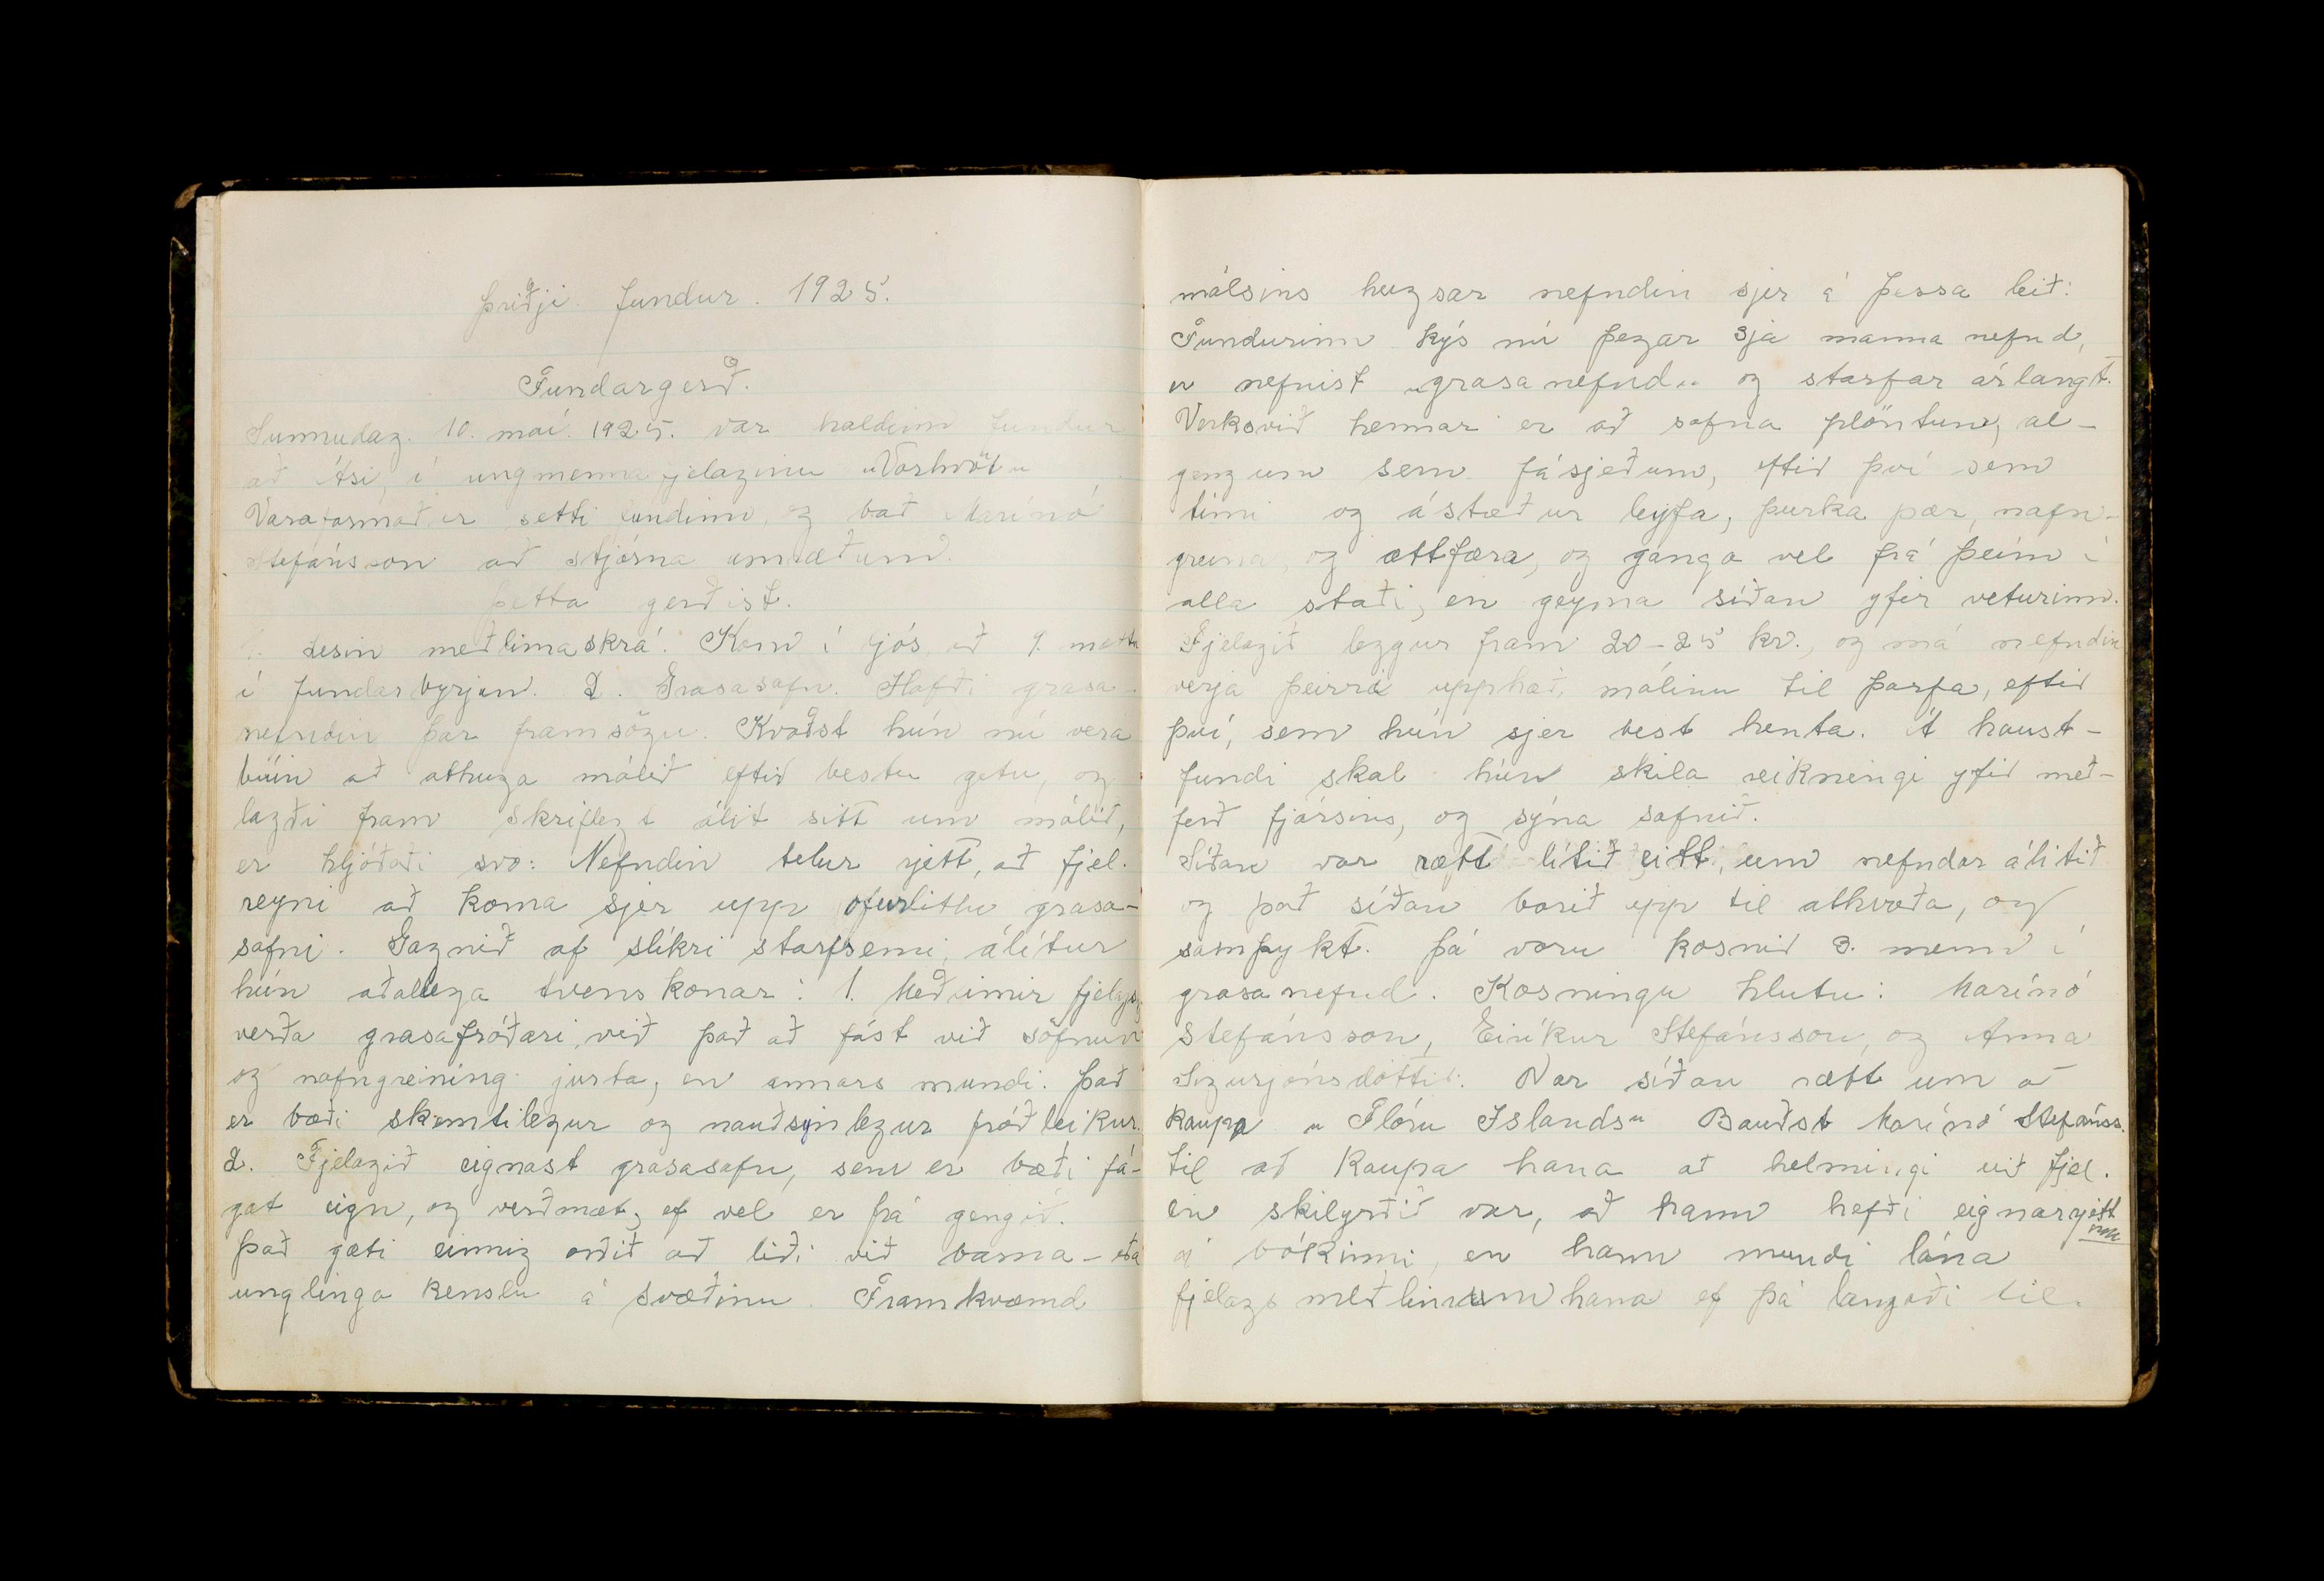 Þriðji fundur. 1925.
Fundargerð.
Sunnudag. 10. maí. 1925. var haldinn fundur
að Ási, í ungmennafjelaginu „Vorhvöt"
Varaformaður setti fundinn, og bað Marínó
Stefánsson að stjórna umræðum.
Þetta gerðist.
1. Lesin meðlimaskrá. Kom í ljós að 9. mættu
í fundarbyrjun. 2. Grasasafn. Hafði grasa-
nefndin þar framsögu. Kvaðst hún nú vera
búin að athuga málið eftir bestu getu, og
lagði fram skriflegt álit sitt um málið,
er hljóðaði svo: Nefndin telur rjett, að fjel.
reyni að koma sjer upp ofurlitlu grasa-
safni. Gagnið af slíkri starfsemi, álítur
hún aðallega tvenskonar: 1. Meðlimir fjelags
verða grasafróðari, við það að fást við söfnun
og nafngreining jurta, en annars mundi. Það
er bæði skemtilegur og nauðsynlegur fróðleikur.
2. Fjelagið eignast grasasafn, sem er bæði fá-
gæt eign, og verðmæt, ef vel er frá gengið.
Það gæti einnig orðið að liði við barna- eða
unglinga kenslu á svæðinu. Framkvæmd
málsins hugsar nefndin sjer á þessa leið:
Fundurinn kýs nú þegar 3ja manna nefnd,
er nefnist „grasanefnd" og starfar árlangt.
Verksvið hennar er að safna plöntum, al-
gengum sem fásjeðum, eftir því sem
tími og ástæður leyfa, þurka þær, nafn-
greina, og ættfæra, og ganga vel frá þeim í
alla staði, en geyma síðan yfir veturinn.
Fjelagið leggur fram 20-25 kr., og má nefndin
verja þeirri upphæð, málinu til þarfa, eftir
því, sem hún sjer best henta. Á haust-
fundi skal hún skila reikningi yfir með-
ferð fjársins, og sýna safnið.
Síðan var rætt lítið eitt, um nefndar álitið
og það síðan borið upp til atkvæða, og
samþykt. Þá voru kosnir 3. menn í
grasanefnd. Kosningu hlutu: Marínó
Stefánsson, Eiríkur Stefánsson, og Anna
Sigurjónsdóttir. Var síðan rætt um að
kaupa „Flóru Islands" Bauðst Marínó Stefánss.
til að kaupa hana að helmingi við fjel.
en skilyrðið var, að hann hefði eignarrjett
á bókinni, en hann mundi lána
fjelags meðlimum hana ef þá langaði til.